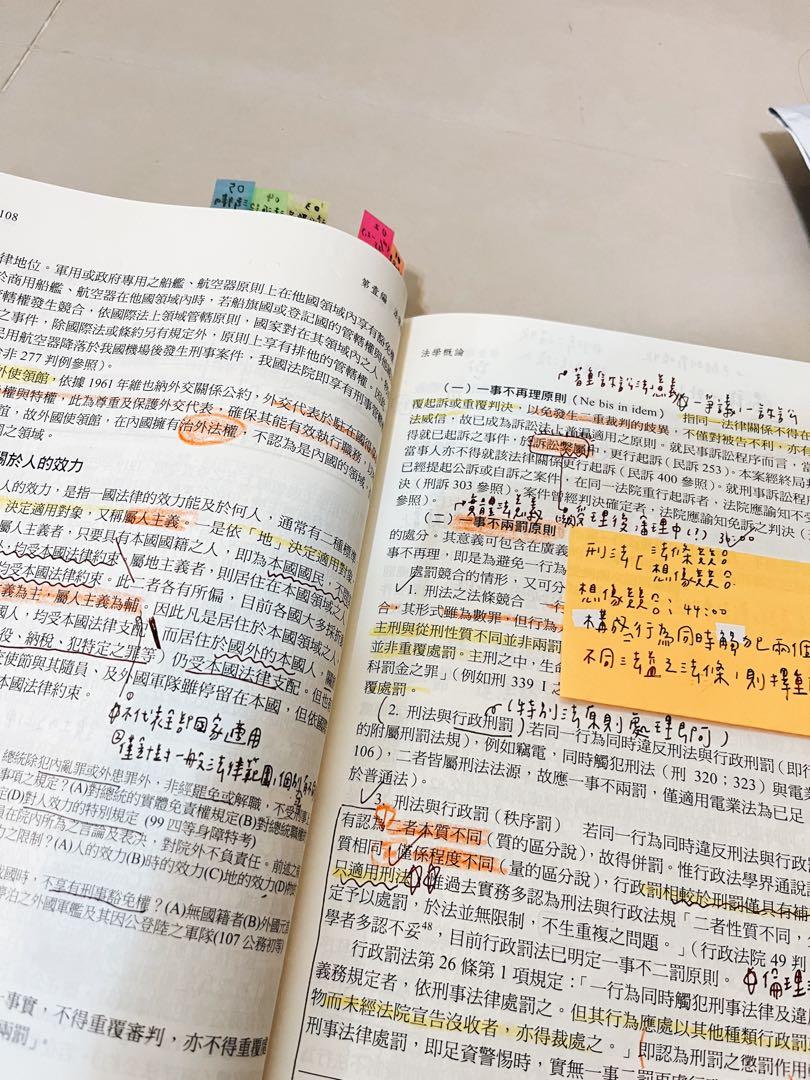 108
第壹編
律地位。軍用或政府專用之船艦、航空器原則上在他國領域內享有豁免
於商用船艦、航空器在他國領域內時，若船旗國或登記國的管轄權與他國
管轄權發生競合，依國際法上領域管轄原則，國家對在其領域內之人、物
之事件，除國際法或條約另有規定外，原則上享有排他的管轄權。因
民用航空器降落於我國機場後發生刑事案件，我國法院即享有刑事管轄
非 277 判例參照）。
外使領館，依據 1961 年維也納外交關係公約，外交代表於駐在國
權與特權，此為尊重及保護外交代表，確保其能有效執行職務，以
誼，故外國使領館，在內國擁有治外法權，不認為是內國的領域，
國之領域。
關於人的效力
人的效力，是指一國法律的效力能及於何人，通常有二種標準
決定適用對象，又稱屬人主義。一是依「地」決定適用對象
人主義者，只要具有本國國籍之人，即為本國國民，不問
，均受本國法律約束。屬地主義者，則居住在本國領域之
均受本國法律約束。此二者各有所偏，目前各國大多採折
義為主，屬人主義為輔。因此凡是居住於本國領域之人
國人，均受本國法律支配。而居住於國外的本國人，關
役、納稅、犯特定之罪等）仍受本國法律支配。但
使節與其隨員、及外國軍隊雖停留在本國，但依國
本國法律約束。
①不代表全部回家適用
②僅針對一般法律範圍，個別
總統除犯內亂罪或外患罪外，非經罷免或解職，不受刑事
事項之規定？(A)對總統的實體免責權規定(B)對總統職權
定(D)對人效力的特別規定 (99 四等身障特考)
員在院內所為之言論及表決，對院外不負責任。前述之
力之限制？(A)人的效力(B)時的效力(C)地的效力(D)物
我國時，不享有刑事豁免權？(A)無國籍者(B)外國元首
停泊之外國軍艦及其因公登陸之軍隊(107 公務初等)
一事實，不得重覆審判，亦不得重覆處
兩罰」。
法學概論
（一）一事不再理原則（Ne bis in idem） 指同一法律關係不得在
覆起訴或重覆判決，以免發生二重裁判的歧異，不僅對被告不利，亦有
法威信，故已成為訴訟法上普遍適用之原則。就民事訴訟程序而言，當
得就已起訴之事件，於訴訟繫屬中，更行起訴（民訴 253）。本案經終局判
當事人亦不得就該法律關係更行起訴（民訴 400 參照）。就刑事訴訟程
已經提起公訴或自訴之案件，在同一法院重行起訴者，法院應諭知不受
決（刑訴 303 參照）。案件曾經判決確定者，法院應諭知免訴之判決
參照）。
（二）一事不兩罰原則
的處分。其意義可包含在廣義
事不再理，即是為避免一行為
處罰競合的情形，又可分
1. 刑法之法條競合
合，其形式雖為數罪，但行為
主刑與從刑性質不同並非兩罰
並非重覆處罰。主刑之中，生命
科罰金之罪」（例如刑 339 Ⅰ之
覆處罰。
刑法
法條競合
想像競合
想像競合：44:00
構成一行為同時觸犯兩個
不同法益之法條，則擇重
（特別法原則處理即可）
2. 刑法與行政刑罰 若同一行為同時違反刑法與行政刑罰（即行
的附屬刑罰法規），例如竊電，同時觸犯刑法（刑 320；323）與電業
106），二者皆屬刑法法源，故應一事不兩罰，僅適用電業法為已足
於普通法）。
3. 刑法與行政罰（秩序罰） 若同一行為同時違反刑法與行政罰
有認為二者本質不同（質的區分說），故得併罰。惟行政法學界通說認
質相同，僅係程度不同（量的區分說），行政罰相較於刑罰僅具有補
只適用刑法。惟過去實務多認為刑法與行政法規「二者性質不同，
定予以處罰，於法並無限制，不生重複之問題。」（行政法院 49 判
學者多認不妥48，目前行政罰法已明定一事不二罰原則。
行政罰法第 26 條第 1 項規定：「一行為同時觸犯刑事法律及違反
義務規定者，依刑事法律處罰之。但其行為應處以其他種類行政罰
物而未經法院宣告沒收者，亦得裁處之。」即認為刑罰之懲罰作用
刑事法律處罰，即足資警惕時，實無一事二罰再處